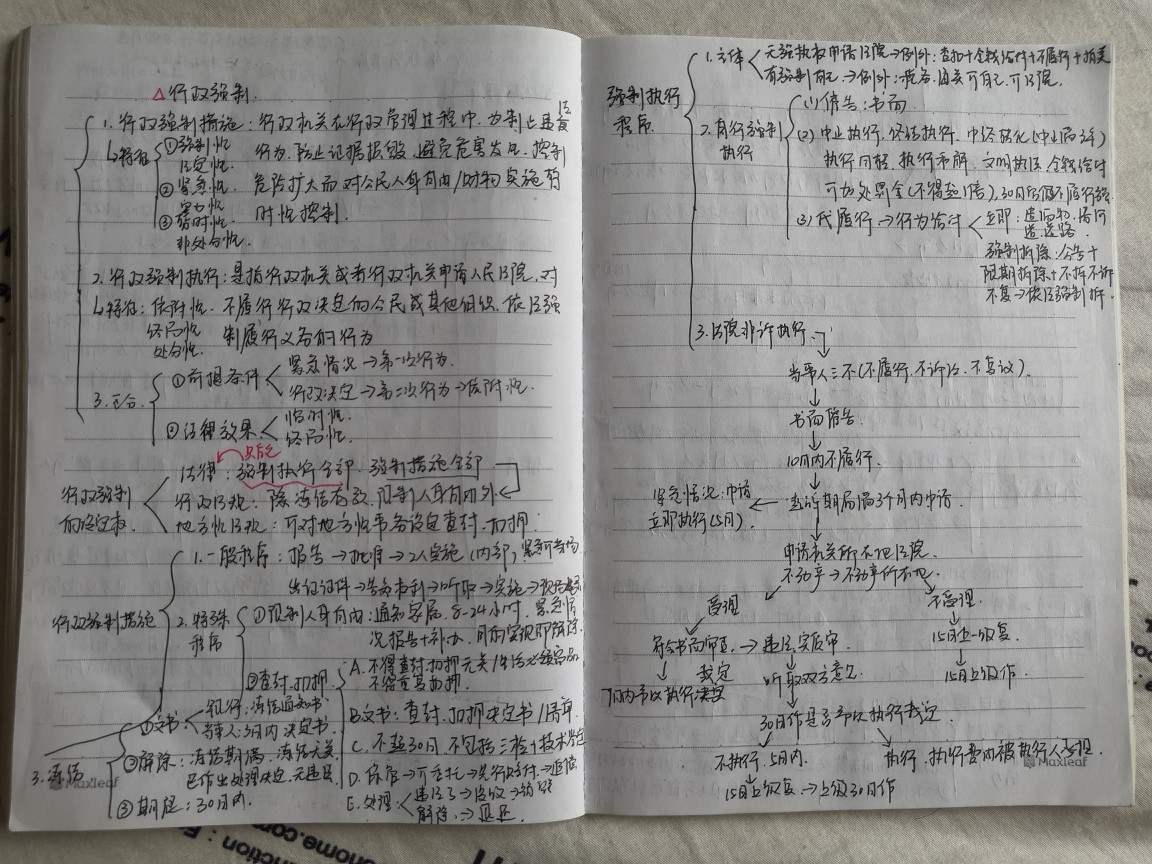 △行政强制.
1. 行政强制措施:行政机关在行政管理过程中,为制止违法
行为,防止证据损毁,避免危害发生,控制
危险扩大而对公民人身自由/财物实施暂
时性控制.
↳特征 ①强制性
法定性.
②紧急性.
③暂时性.
非处分性.
2. 行政强制执行:是指行政机关或者行政机关申请人民法院,对
不履行行政决定的公民或其他组织,依法强
制履行义务的行为
↳特征:依附性.
终局性
处分性.
3. 区分.
①前提条件
紧急情况→第一次行为.
行政决定→第二次行为→依附性.
②法律效果.
临时性.
终局性.
行政强制
的设定权.
只能
法律:强制执行全部.强制措施全部
行政法规:除冻结存款、限制人身自由外
地方性法规:可对地方性事务设定查封、扣押.
行政强制措施
1.一般程序:报告→批准→2人实施(内部)
出证证件→告知权利→听取→实施→
2.特殊
程序
①限制人身自由:通知家属.8-24小时.紧急情
况报告+补办.目的实现即解除.
②查封、扣押
A.不得查封扣押无关/生活必需品
不得重复扣押.
B.文书:查封、扣押决定书/清单.
C.不超30日,不包括
D.保管→可委托→先行赔付→追偿
E.处理
解除→退还
3.冻结
①文书
银行:冻结通知书
当事人:3日内决定书.
②解除:冻结期满,冻结无关
已作出处理决定,无违法
③期限:30日内.
Maxleaf
强制执行
程序.
1.主体
无强执权申请法院→例外:查扣+金钱给付+不履行+拍卖
有强制自己→例外:税务、海关可自己、可法院.
2.自行强制
执行
(1)催告:书面
(2)中止执行、终结执行、中终转化(中止满3年)
执行回转、执行和解、文明执法、金钱给付
可加处罚金(不得超1倍),30日后仍不履行强
(3)代履行→行为给付
立即:遗洒物、清河
道道路.
强制拆除:公告+
限期拆除+不拆不诉
不复→依法强制拆.
3.法院非诉执行.
当事人三不(不履行、不诉讼、不复议).
书面催告.
10日内不履行.
紧急情况:申请
立即执行(5日).
起诉期届满3个月内申请.
申请机关所在地法院.
不动产→不动产所在地
受理
不受理.
符合书面审查.→违法实质审.
15日上一级复.
裁定
听取双方意见
15日上级作.
7日内予以执行决定
30日作是否予以执行裁定.
不执行.5日内.
执行.执行费由被执行人承担.
15日上级复→上级30日作
Maxleaf